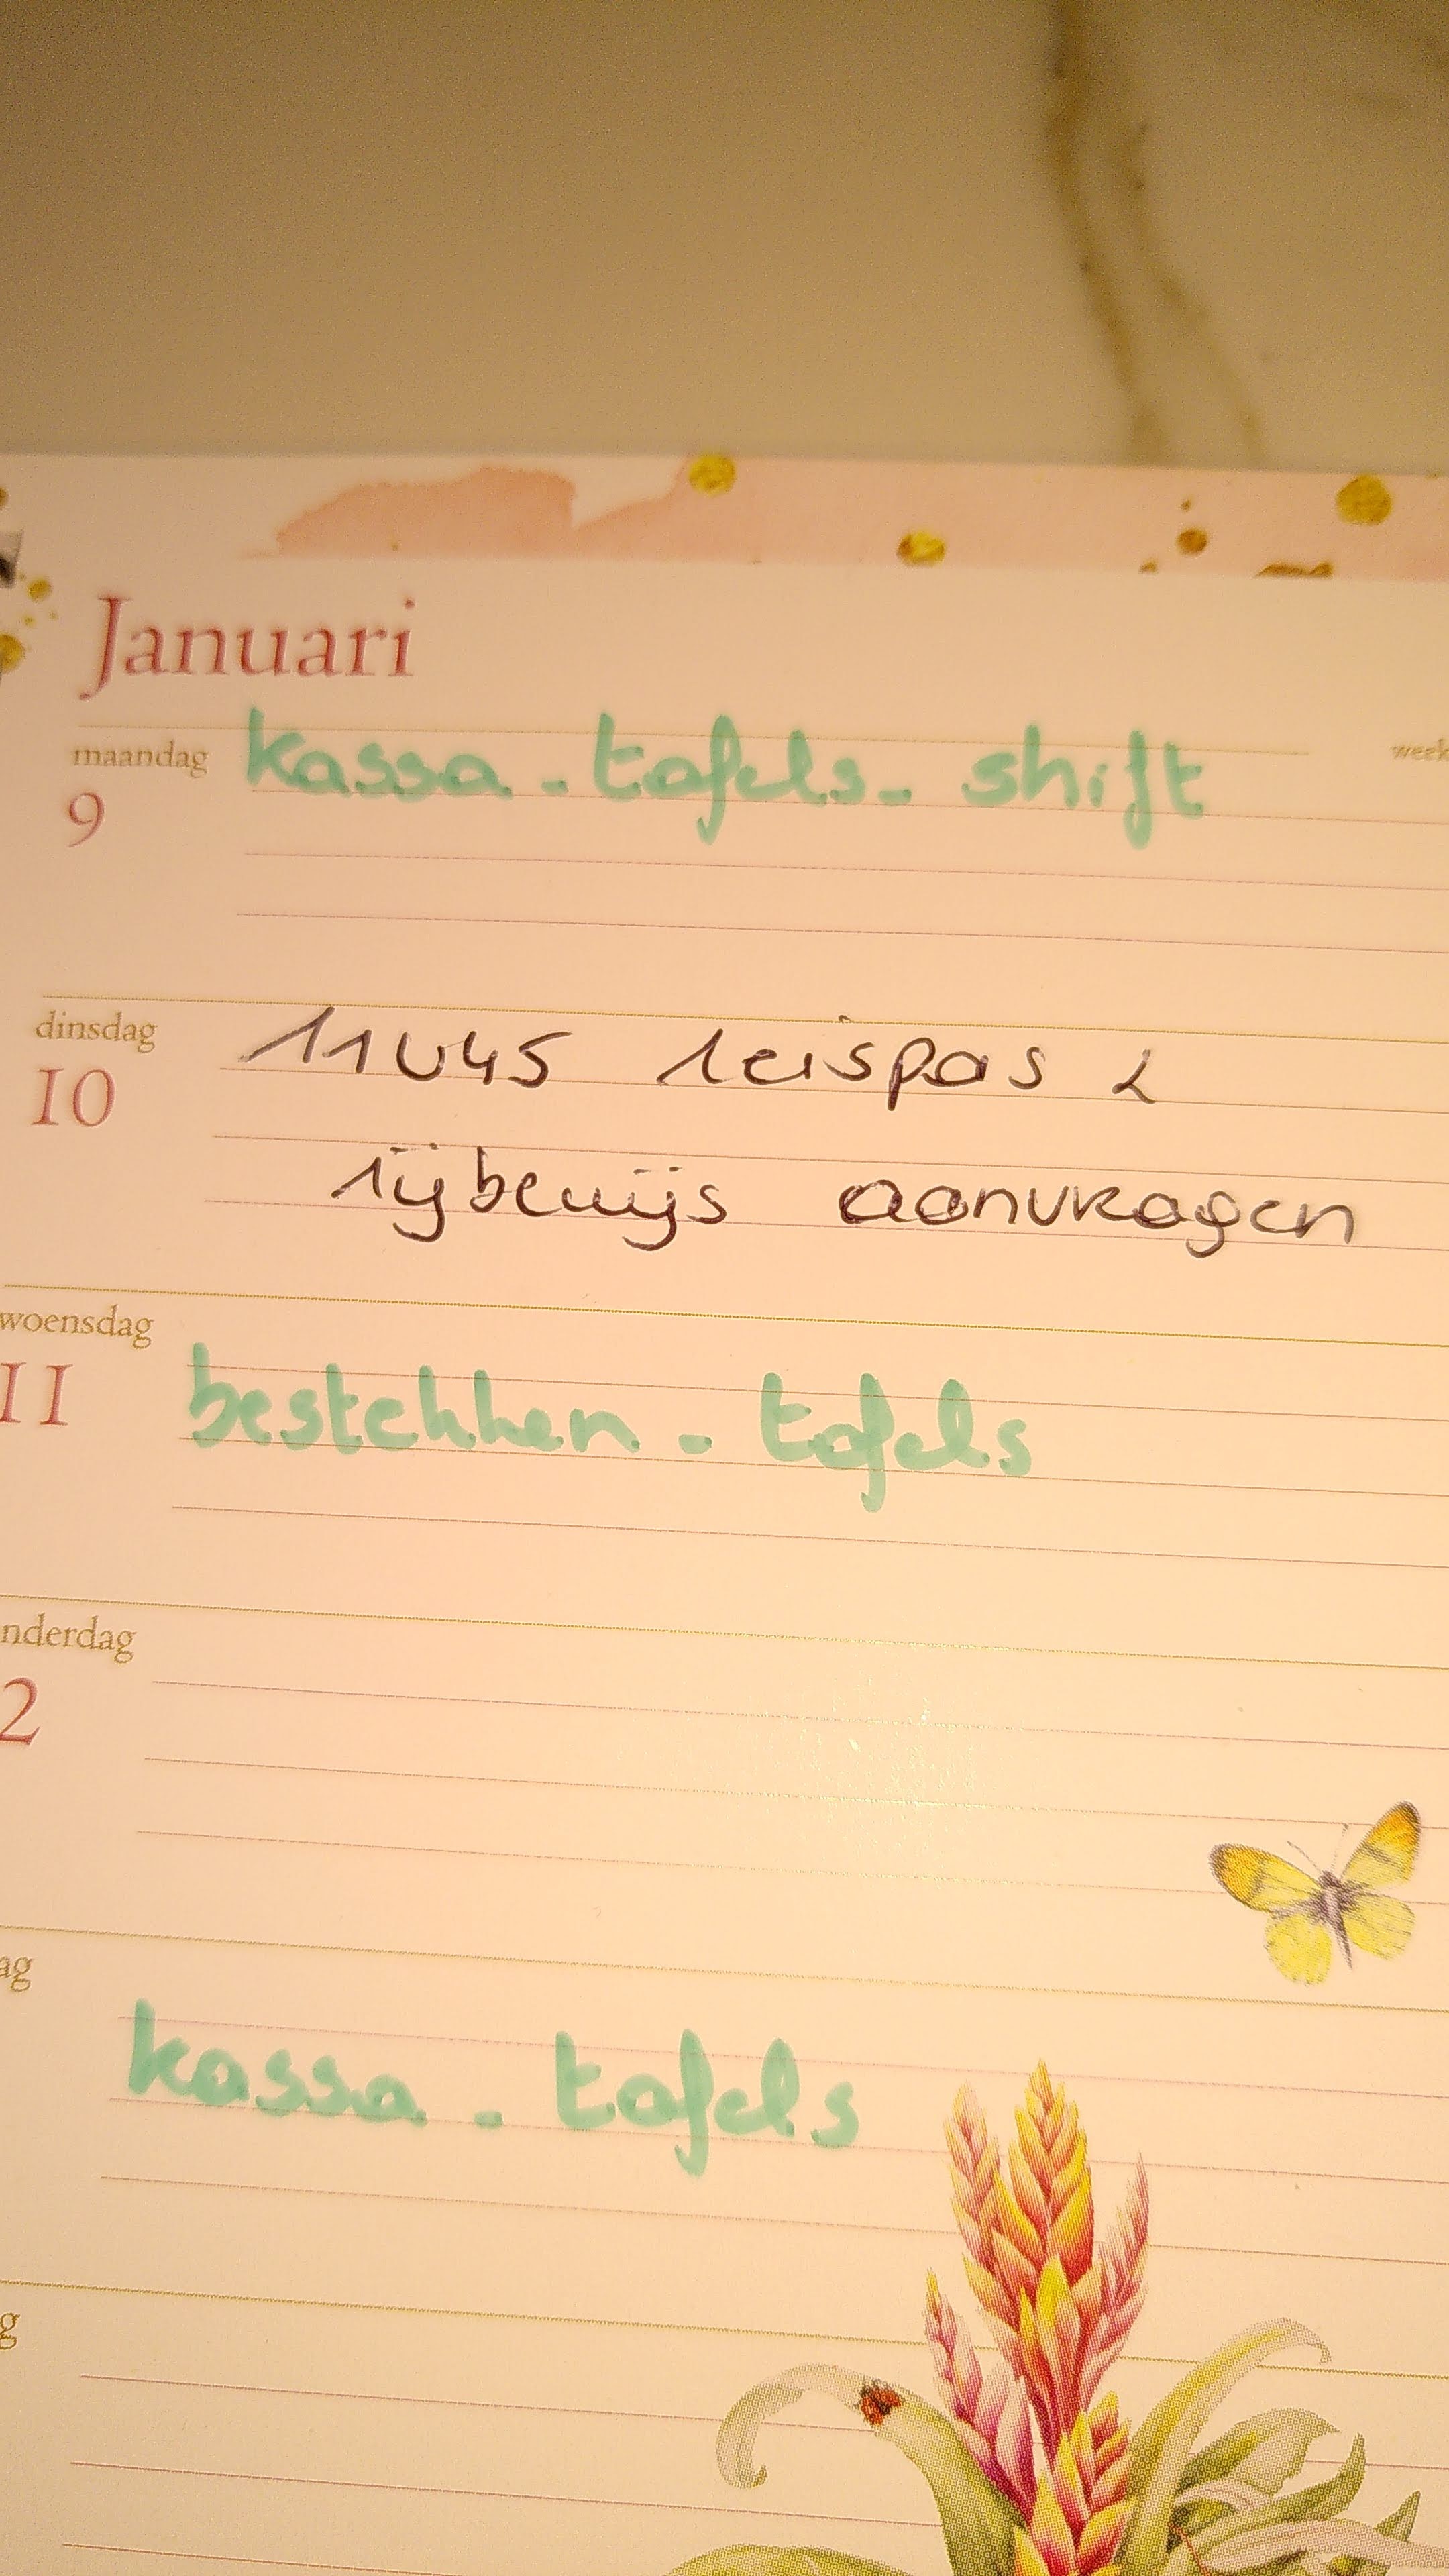 Januari
maandag kassa - tafels - shift week
9
dinsdag 11u45 reispas &
10
rijbewijs aanvragen
woensdag
11 bestekken - tafels
nderdag
2
ag
kassa - tafels
g